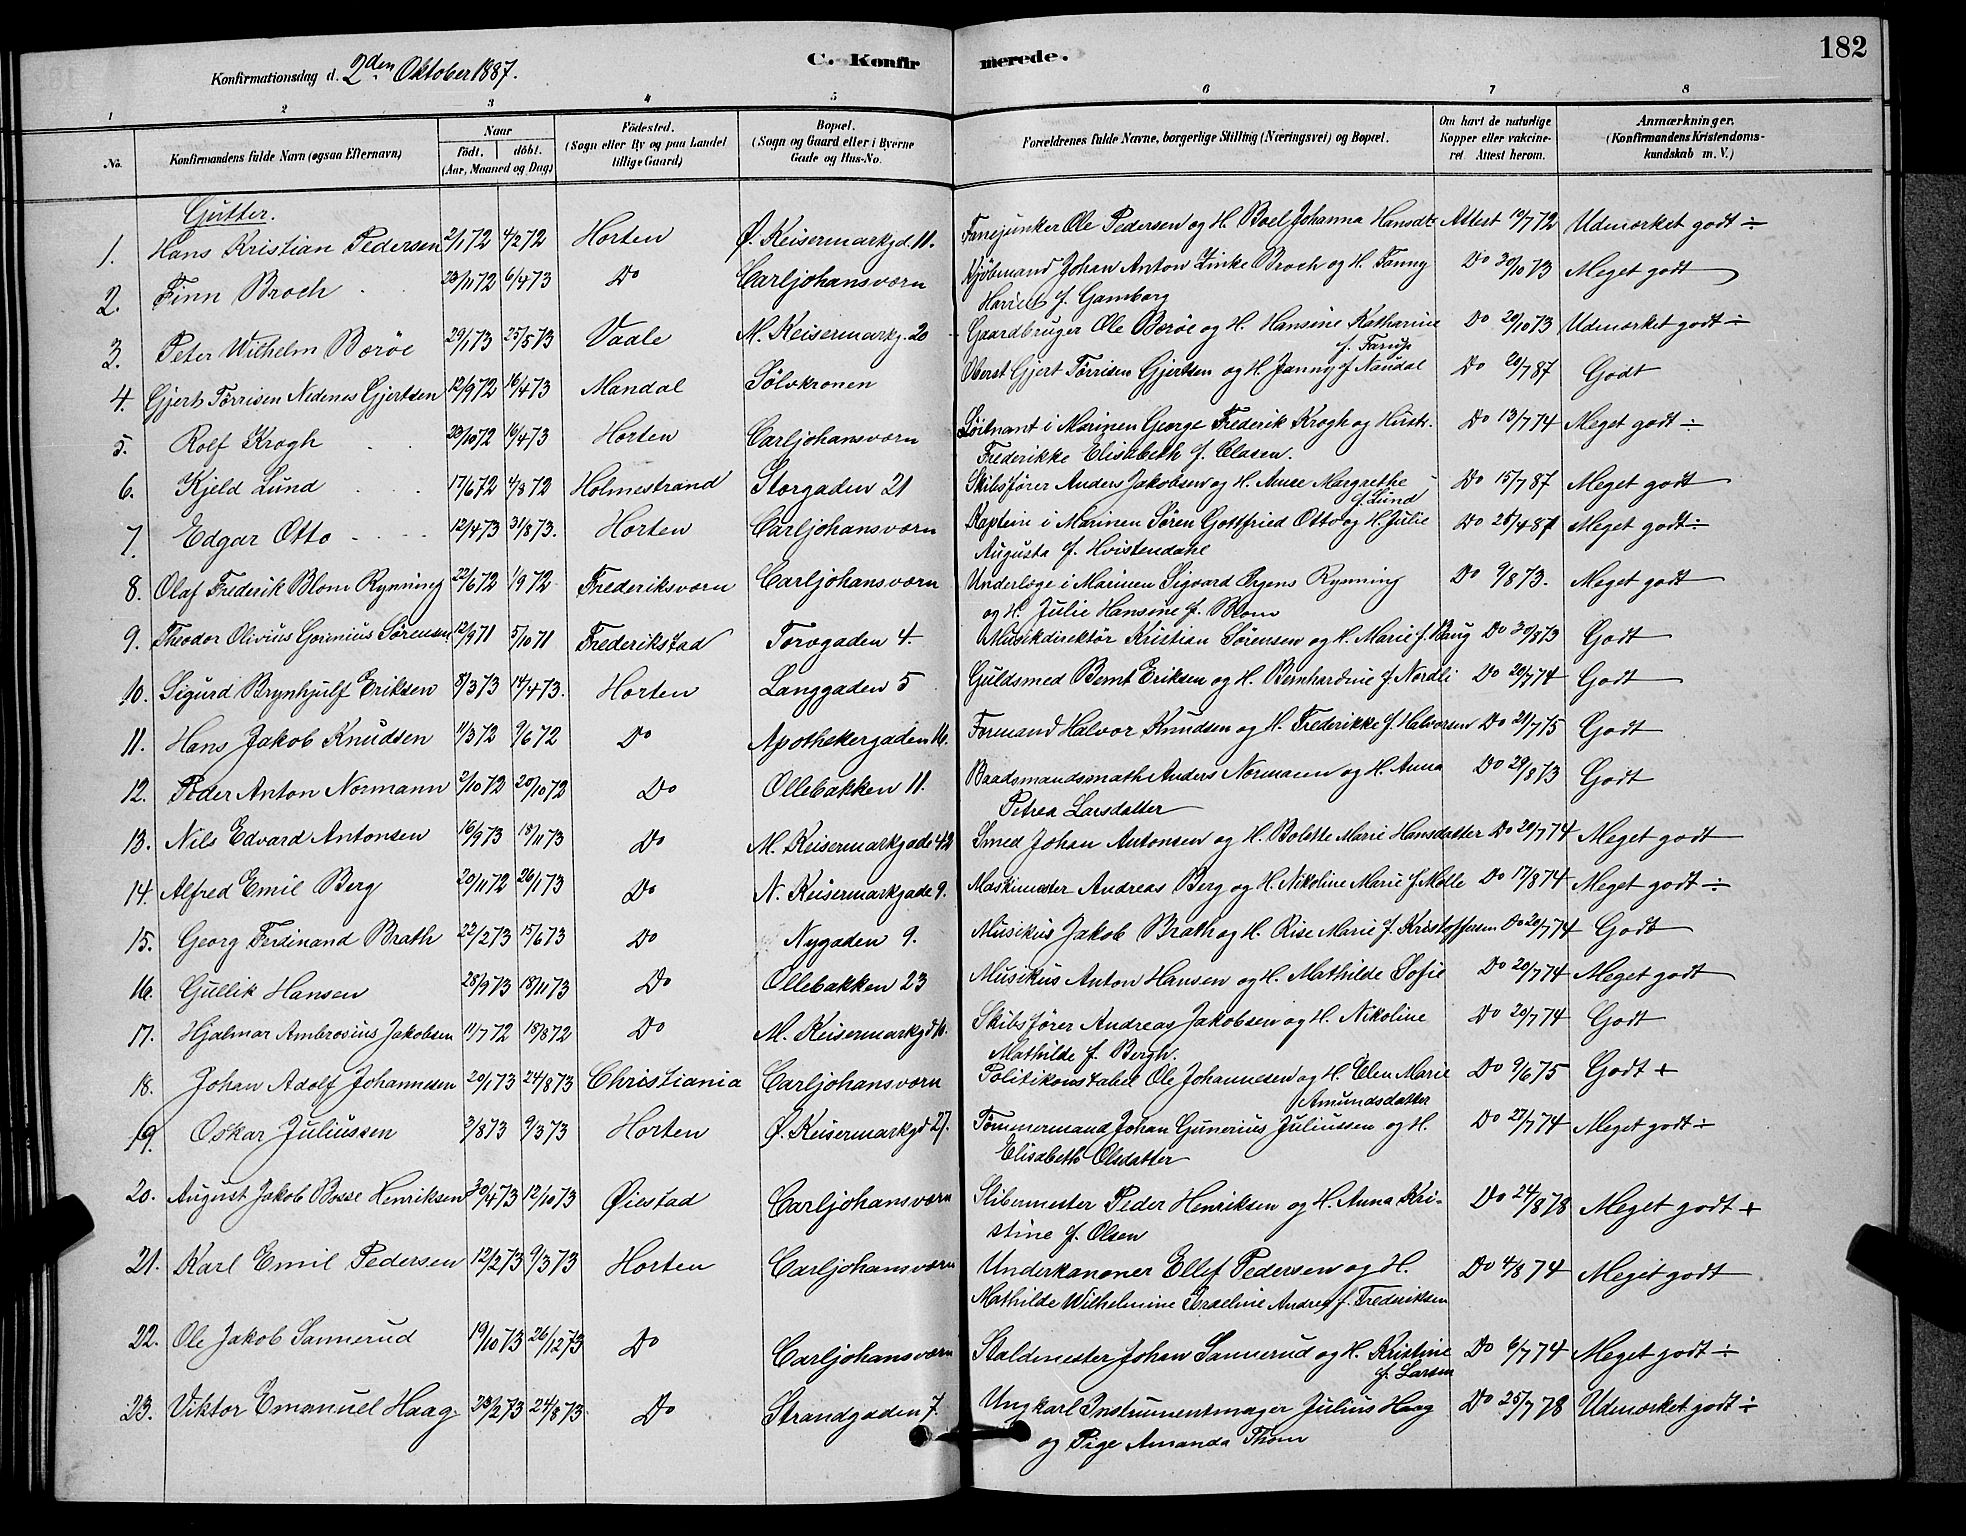 182
Konfirmationsdag d. 2den Oktober 1887.
C. Konfirmerede.
1 2 3 4 5 6 7 8
No. Konfirmandens fulde Navn (ogsaa Efternavn) Naar født. døbt. (Aar, Maaned og Dag) Fødested. (Sogn eller By og paa Landet tillige Gaard) Bopæl. (Sogn og Gaard eller i Byerne Gade og Hus-No. Forældrenes fulde Navne, borgerlige Stilling (Næringsvei) og Bopæl. Om havt de naturlige Kopper eller vakcineret. Attest herom. Anmærkninger. (Konfirmandens Kristendomskundskab m. V.)
Gutter.
1. Hans Kristian Pedersen 2/1 72 4/2 72 Horten Ø. Keisermarkgd. 11. Fanejunker Ole Pedersen og H. Boel Johanna Hansdt. Attest 19/7 72 Udmærket godt ÷
2. Finn Broch 23/11 72 6/4 73 Do Carljohansværn Kjøbmand Johan Anton Zinke Broch og H. Fanny
Harriet f. Gamborg Do 30/10 73 Meget godt
3. Peter Wilhelm Børøe 29/1 73 25/5 73 Vaale M. Keisermarkg. 20 Gaardbruger Ole Børøe og H. Hansine Katharine
f. Farup Do 20/10 73 Udmærket godt ÷
4. Gjert Tørrisen Nedenes Gjertsen 12/9 72 16/4 73 Mandal Sølvkronen Oberst Gjert Tørrisen Gjertsen og H. Janny f. Naudal Do 20/7 87 Godt
5. Rolf Krogh 20/10 72 16/4 73 Horten Carljohansværn Løitnant i Marinen George Frederik Krogh og Hustr.
Frederikke Elisabeth f. Clasen. Do 13/7 74 Meget godt ÷
6. Kjeld Lund 17/6 72 4/8 72 Holmestrand Storgaden 21 Skibsfører Anders Jakobsen og H. Anne Margrethe
f. Lund Do 15/7 87 Meget godt
7. Edgar Otto 12/4 73 31/8 73. Horten Carljohansværn Kaptein i Marinen Søren Gottfried Otto og H. Julie
Augusta f. Hvistendahl Do 28/4 87 Meget godt ÷
8. Olaf Frederik Blom Rynning 22/6 72 1/9 72 Frederiksværn Carljohansværn Underlæge i Marinen Sigvard Ørgens Rynning
og H. Julie Hansine f. Blom Do 9/8 73. Meget godt
9. Theodor Olivius Gorinius Sørensen 12/9 71 5/10 71 Frederikstad Torvgaden 4. Musikdirektør Kristian Sørensen og H. Marie f. Haug Do 30/8 73 Godt
10. Sigurd Brynhjulf Eriksen 8/3 73 14/4 73. Horten Langgaden 5 Guldsmed Bernt Eriksen og H. Bernhardine f. Nordli Do 20/7 74 Godt
11. Hans Jakob Knudsen 11/3 72 9/6 72 Do Apothekergaden 16. Formand Halvor Knudsen og H. Frederikke f. Halvorsen Do 21/7 75 Godt
12. Peder Anton Normann 2/10 72 20/10 72 Do Ollebakken 11. Baadsmandsmath Anders Normann og H. Anna
Petrea Larsdatter Do 29/8 73 Godt
13. Nils Edvard Antonsen 16/9 73 18/11 73 Do M. Keisermarkgade 42 Smed Johan Antonsen og H. Bolette Marie Hansdatter Do 20/7 74 Meget godt
14. Alfred Emil Berg 20/11 72 26/1 73 Do N. Keisermarkgade 9. Maskinmester Andreas Berg og H. Nikoline Marie f. Molle Do 17/8 74 Meget godt ÷
15. Georg Ferdinand Brath 22/2 73 15/6 73 Do Nygaden 9. Musikus Jakob Brath og H. Rise Marie f. Kristoffersen Do 20/7 74 Godt
16. Gullik Hansen 28/9 73 18/11 73 Do Ollebakken 23 Musikus Anton Hansen og H. Mathilde Sofie Do 20/7 74 Meget godt
17. Hjalmar Ambrosius Jakobsen 11/7 72 18/8 72 Do M. Keisermarkgd 16. Skibsfører Andreas Jakobsen og H. Nikoline
Mathilde f. Bergh. Do 20/7 74 Godt
18. Johan Adolf Johannesen 20/1 73 24/8 73 Christiania Carljohansværn Politikonstabel Ole Johannesen og H. Elen Marie
Amundsdatter Do 9/6 75 Godt +
19. Oskar Juliussen 3/8 73 9/3 73 Horten Ø. Keisermarkgd 27. Tømmermand Johan Gunerius Juliussen og H.
Elisabeth Olsdatter Do 27/7 74 Meget godt ÷
20. August Jakob Bosse Henriksen 30/4 73 12/10 73 Øiestad Carljohansværn Slibemester Peder Henriksen og H. Anna Kri-
stine f. Olsen Do 24/8 78 Meget godt +
21. Karl Emil Pedersen 12/2 73 9/3 73 Horten Carljohansværn Underkanoner Ellef Pedersen og H.
Mathilde Wilhelmine Israeline Andrea f. Frederiksen Do 4/8 74 Meget godt
22. Ole Jakob Sannerud 19/10 73 26/12 73 Do Carljohansværn Staldmester Johan Sannerud og H. Kristine
f. Larsen Do 6/7 74 Meget godt ÷
23. Viktor Emanuel Haag 23/2 73 24/8 73 Do Strandgaden 7. Ungkarl Instrumentmager Julius Haag
og Pige Amanda Thom Do 25/7 78 Udmærket godt ÷